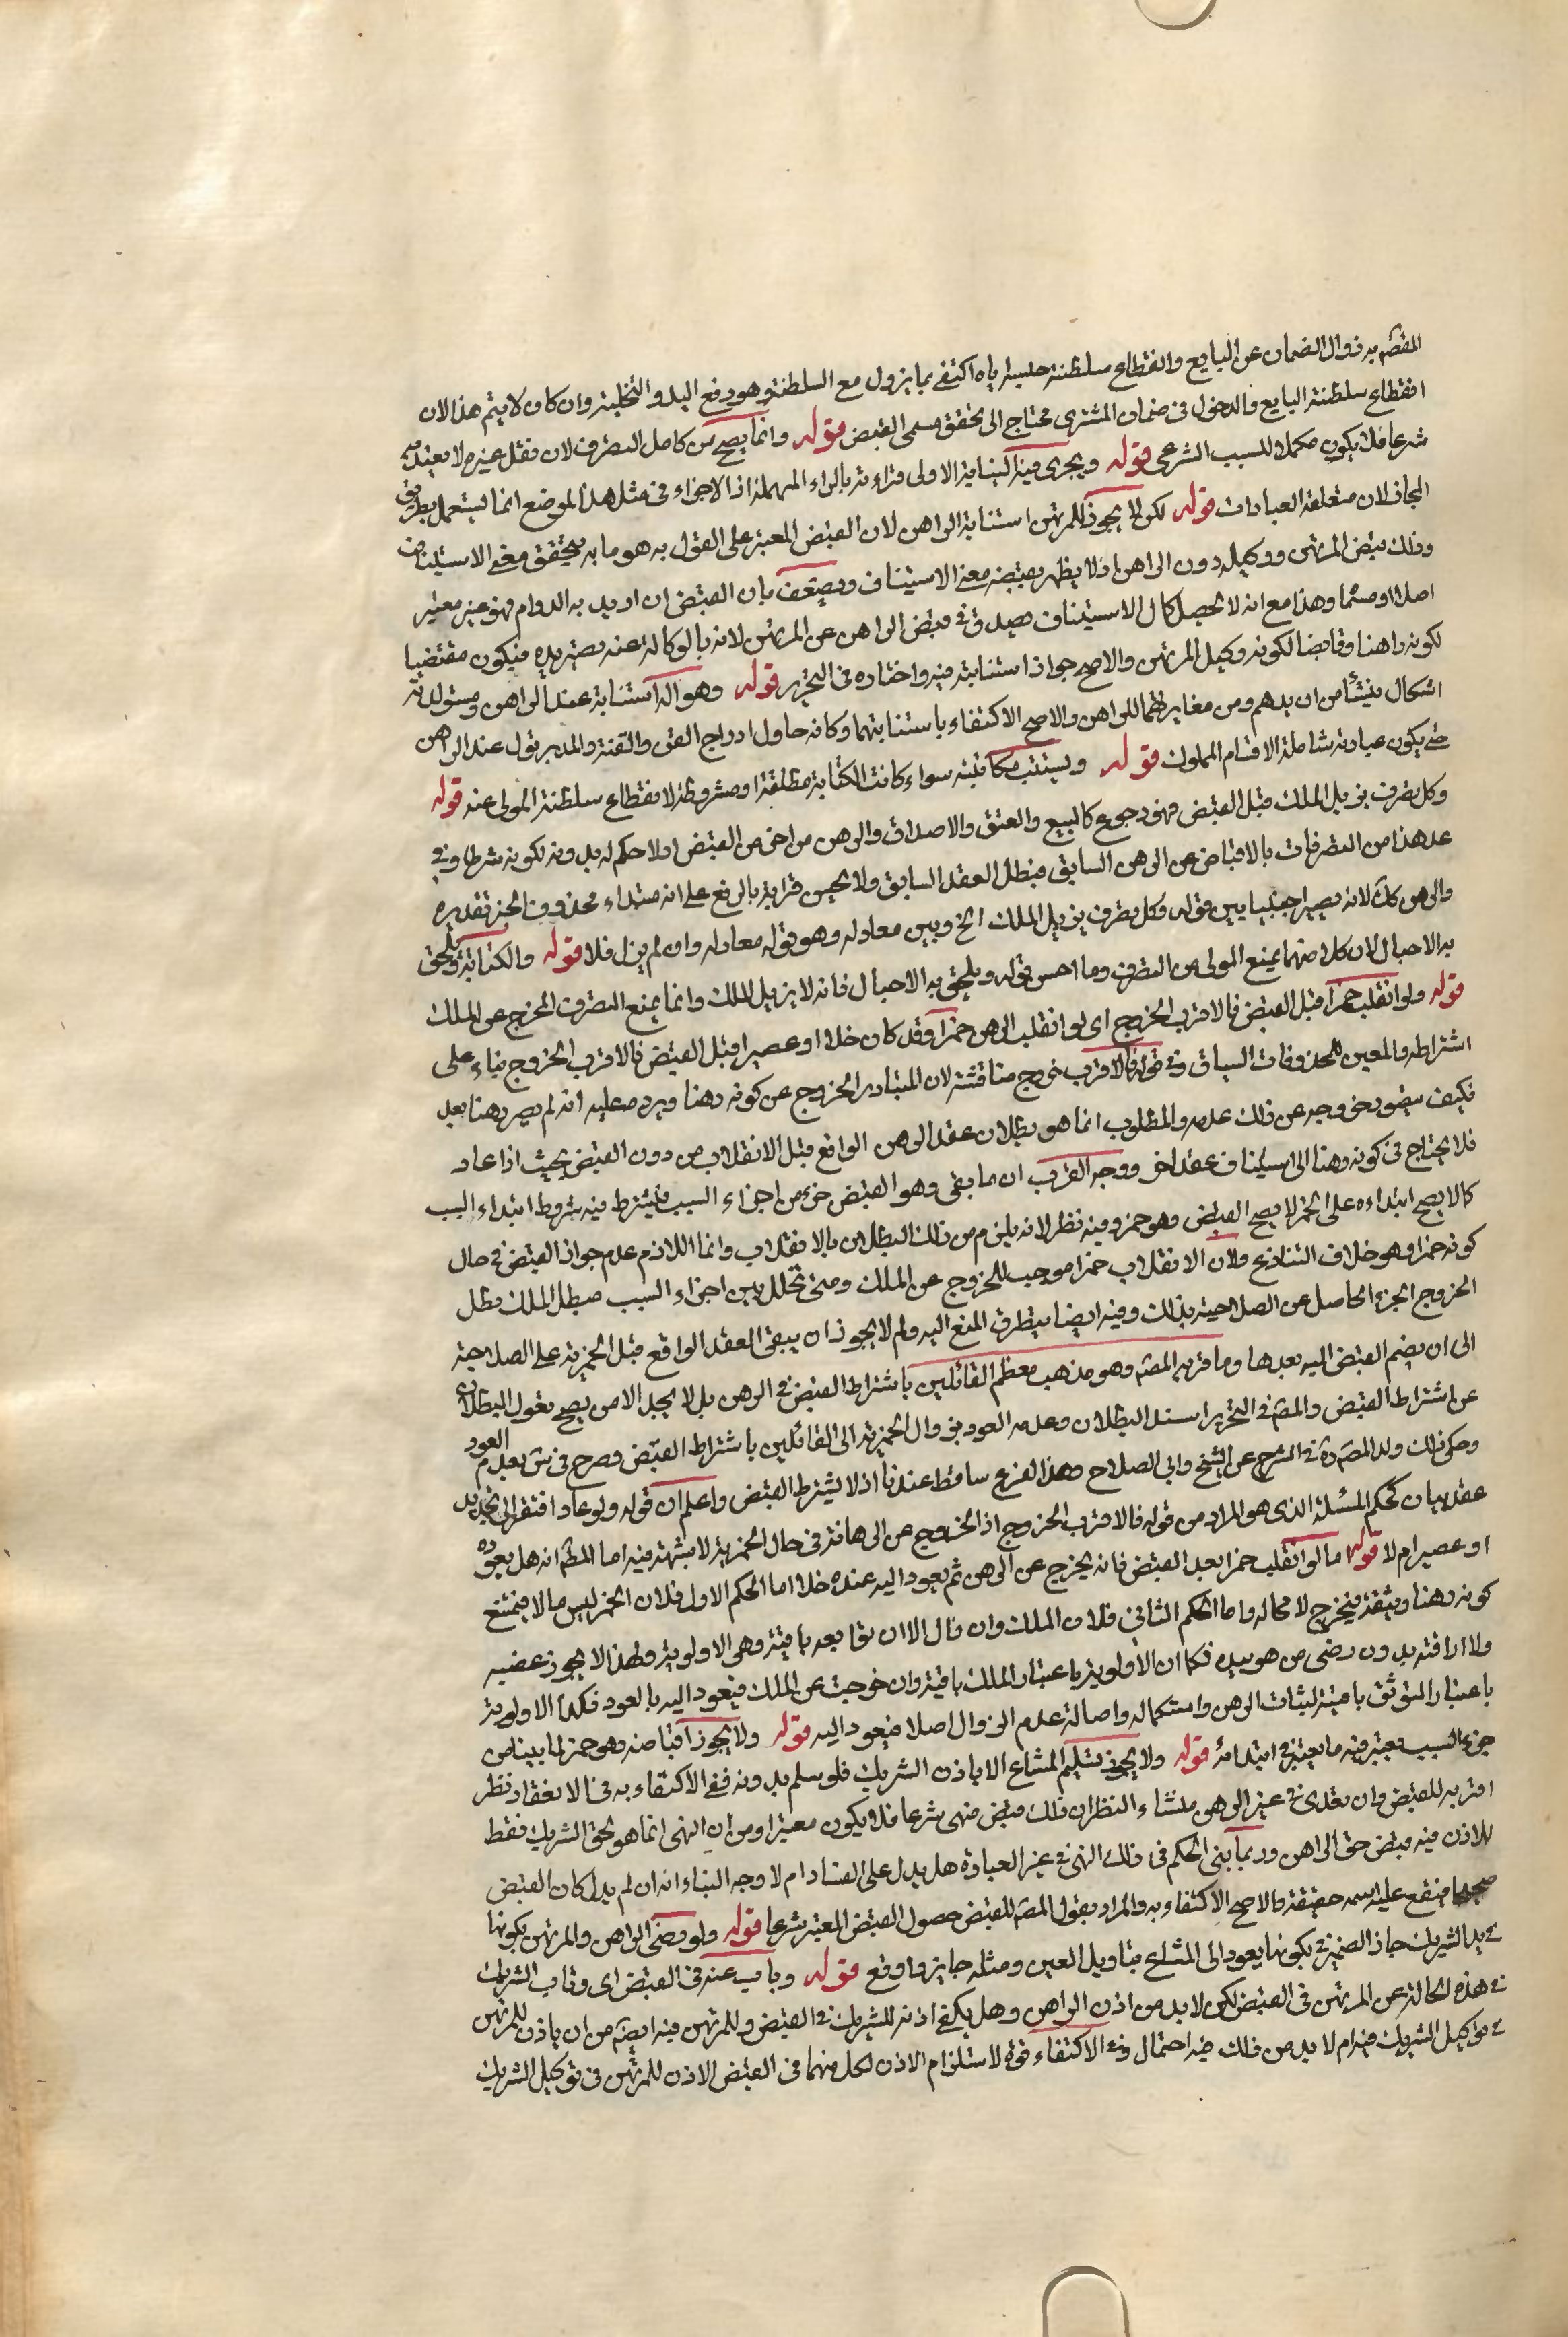 المقصد به زوال الضمان عن البايع وانقطاع سلطنة حبسه اياه اكتفى بما يزول مع السلطنة وهو رفع اليد والتخلية وان كان لا يتم هذا لان
انقطاع سلطنة البايع والدخول في ضمان المشترى محتاج الى تحقق مسمى القبض قوله وانما يصح من كامل التصرف لان فعل غيره لا يعتد به
شرعا فلا يكون مكملا للسبب الشرعى قوله ويجرى فيه النيابة الاولى قراءته بالراء المهملة اذ الاجزاء فى مثل هذا الموضع انما يستعمل بطريق
المجاز لان متعلقه العبادات قوله لكن لا يجوز للمرتهن استنابة الراهن لان القبض المعتبر على القول به هو ما به يتحقق معنى الاستيناف
وذلك بقبض المرتهن ووكيله دون الراهن اذ لا يظهر بقبضه معنى الاستيناف ويضعف بان القبض ان اريد به الدوام فهو غير معتبر
اصلا او مسمّاه وهذا مع انه لا يحصل كمال الاستيناف يصدق فى قبض الراهن عن المرتهن لانه بالوكالة عنه يصير يده فيكون مقتضيا
لكونه راهنا وقابضا لكونه وكيل المرتهن والاصح جواز استنابته فيه واختاره فى التحرير قوله وهو اله استنابة عبد الراهن ومستولدته
اشكال ينشأ من ان يدهم ومن مغايرتهما للراهن والاصح الاكتفاء باستنابتهما وكانه حاول ادراج القن والقنة والمدبر بقول عبد الراهن
حتى يكون عبارته شاملة لاقسام المملوك قوله ويستنيب مكاتبه سواء كانت الكتابة مطلقة او مشروطة لانقطاع سلطنة المولى عنه قوله
وكل تصرف يزيل الملك قبل القبض فهو رجوع كالبيع والعتق والاصداق والرهن من اخر من القبض اولا حكم له بدونه لكونه شرطا وفى
عد هذا من التصرفات بالاقباض عن الرهن السابق فيبطل العقد السابق ولا يحسن قرايته بالرفع على انه مبتداء محذوف الخبر تقديره
والرهن كك لانه يصير اجنبيا بين قوله وكل تصرف يزيل الملك الخ وبين معادله وهو قوله معادله وان لم يزل فلا قوله والكتابة ويلحق
به الاحبال لان كلا منهما يمنع المولى من التصرف وما احسن قوله ويلحق به الاحبال فانه لا يزيل الملك وانما يمنع التصرف المخرج عن الملك
قوله ولو انقلب خمرا قبل القبض فالاقرب الخروج اى لو انقلب الرهن خمرا وقد كان خلا او عصيرا قبل القبض فالاقرب الخروج بناء على
اشتراطه والمعين للمحذوفات السياق وفى قوله فالاقرب خروج مناقشة لان المتبادر الخروج عن كونه رهنا ويرد عليه انه لم يصر رهنا بعد
فكيف يتصور خروجه عن ذلك عدمه والمطلوب انما هو بطلان عقد الرهن الواقع قبل الانقلاب من دون القبض بحيث اذا عاد
فلا يحتاج فى كونه رهنا الى استيناف عقد اخر ووجه القرب ان ما بقى وهو القبض جزء من اجزاء السبب فيشترط فيه شروط ابتداء السبب
كما لا يصح ابتداءه على الخمر لا يصح القبض وهو خمر وفيه نظر لانه يلزم من ذلك البطلان بالانقلاب وانما اللازم عدم جواز القبض فى حال
كونه خمرا وهو خلاف التنازع ولان الانقلاب خمرا موجب للخروج عن الملك ومتى تخلل بين اجزاء السبب مبطل الملك بطل
الخروج الجزء الحاصل عن الصلاحية بذلك وفيه ايضا يتطرق المنع اليه ولم لا يجوز ان يبقى العقد الواقع قبل الخمرية على الصلاحية
الى ان يضم القبض اليه بعدها وما قربه المصنف وهو مذهب معظم القائلين باشتراط القبض فى الرهن بل لا يجد الا من يصح بقول البطلان
عن اشتراط القبض والمصنف فى التحرير اسند البطلان وعدم العود بزوال الخمرية الى القائلين باشتراط القبض وصرح فى بعدم العود
وحكى ذلك ولد المصنف فى الشرح عن الشيخ وابى الصلاح وهذا الفرع ساقط عندنا اذ لا يشترط القبض واعلم ان قوله ولو عاد افتقر الى تجديد
عقد بيان لحكم المسئلة الذى هو المراد من قوله فالاقرب الخروج اذ الخروج عن الرهانة فى حال الخمرية لا شبهة فيه اما المطلق انه هل يعوده
او عصير ام لا قوله اما لو انقلب خمرا بعد القبض فانه يخرج عن الرهن ثم يعود اليه عنده خلا اما الحكم الاول فلان الخمر ليس مالا فيمتنع
كونه رهنا وبثقة فيخرج لا محاله واما الحكم الثانى فلان الملك وان زال الا ان توابعه باقية وهى الاولوية ولهذا لا يجوز غصبه
ولا اراقته بدون رضى من هو بيده فكما ان الاولوية باعتبار الملك باقية وان خرجت عن الملك فيعود اليه بالعود فكذا الاولوية
باعتبار التوثق باقية لثبات الرهن واستكماله واصالة عدم الزوال اصلا فيعود اليه قوله ولا يجوز اقباضه وهو خمر لما بينا من
جزء السبب يعتبر فيه ما يعتبر فى ابتدائه قوله ولا يجوز تسليم المشاع الا باذن الشريك فلو سلم بدونه ففى الاكتفاء به فى الانعقاد نظر
اقربه للقبض وان تعدى فى غير الرهن منشاء النظر ان ذلك قبض منهى شرعا فلا يكون معتبرا ومن ان النهى انما هو لحق الشريك فقط
للاذن فيه قبض حق الراهن وربما يبنى الحكم فى ذلك النهى فى غير العبادة هل يدل على الفساد ام لا وجه البناء انه ان لم يدل كان القبض
صحيحا فيقع عليه اسمه حقيقة والاصح الاكتفاء به والمراد بقول المصنف للقبض حصول القبض المعتبر شرعا قوله ولو رضى الراهن والمرتهن بكونها
فى يد الشريك جاز الضمير فى بكونها يعود الى المشاع بتاويل العين ومثله جايز واوقع قوله وناب عنه فى القبض اى وناب الشريك
فى هذه الحالة عن المرتهن فى القبض لكن لا بد من اذن الراهن وهل يكفى اذنه للشريك فى القبض وللمرتهن فيه ايضا من ان ياذن للمرتهن
فى توكيل الشريك فيه ام لا بد من ذلك فيه احتمال وفى الاكتفاء قوة لاستلزام الاذن لكل منهما فى القبض الاذن للمرتهن فى توكيل الشريك